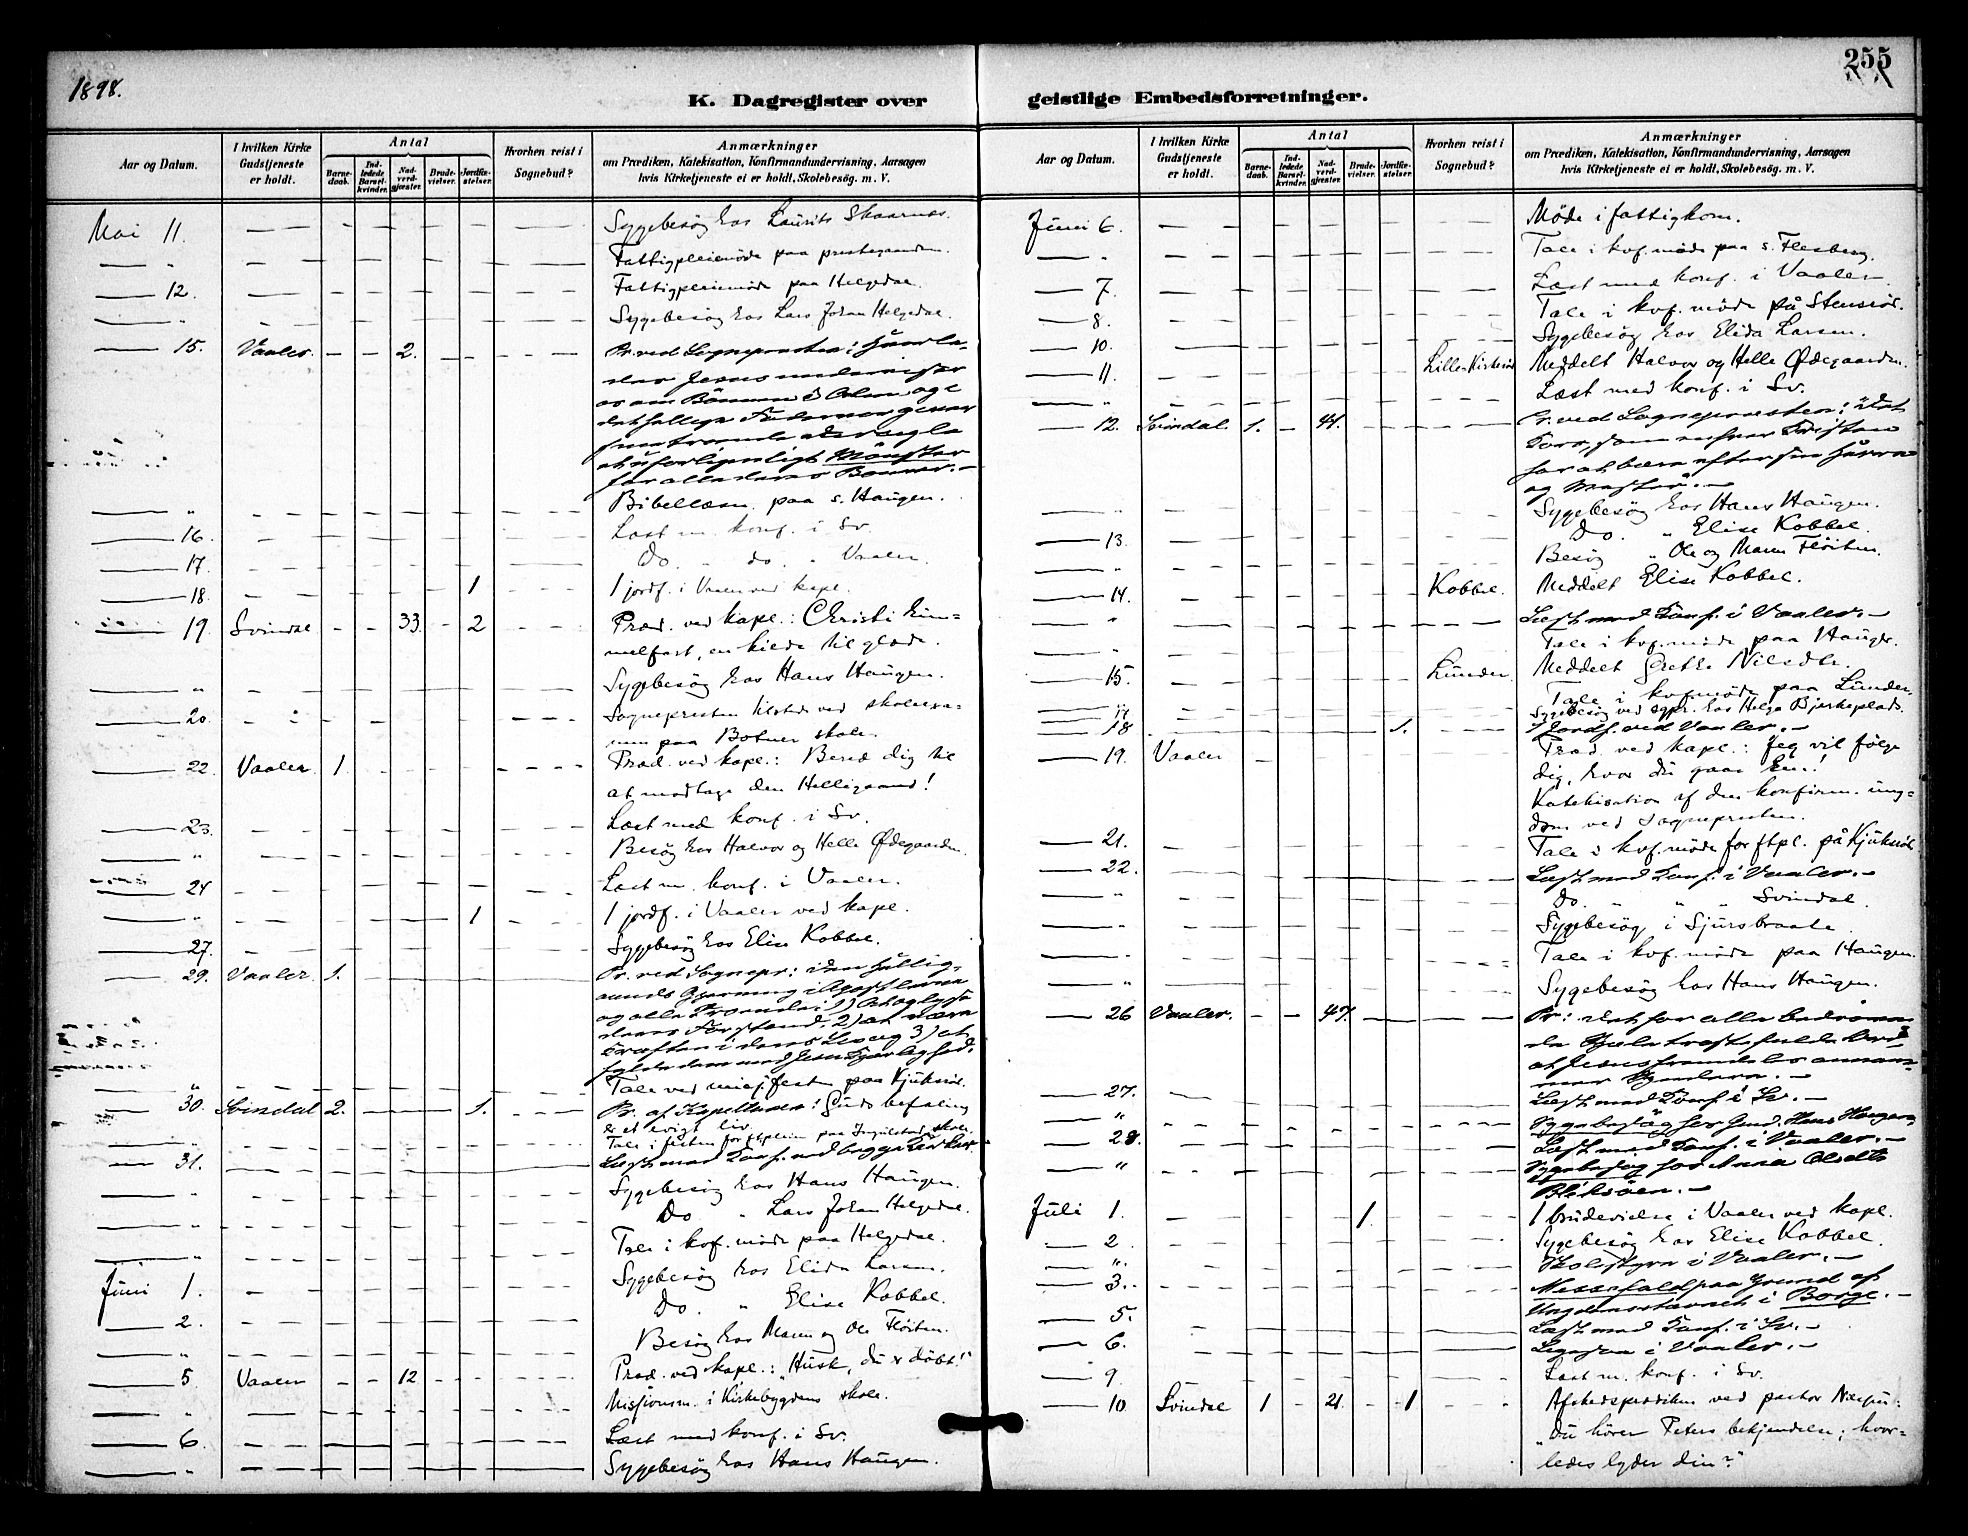 1898.
255
K. Dagregister over
geistlige Embedsforretninger.
Aar og Datum.
I hvilken Kirke Gudstjeneste er holdt.
Antal
Barnedaab.
Indledede Barselkvinder.
Nadverdgjæster.
Brudevielser.
Jordfæstelser.
Hvorhen reist i Sognebud?
Anmærkninger
om Prædiken, Katekisation, Konfirmandundervisning, Aarsagen
hvis Kirketjeneste ei er holdt, Skolebesøg. m. V.
Mai 11. Sygebesøg hos Laurits Skaarnes.
" Fattigpleiemøde paa prestegaarden.
12. Fattigpleiemøde paa Helgedal.
" Sygebesøg hos Lars Johan Helgedal.
15. Vaaler. 2. Pr. ved Sognepresten: Hvorle-
des Jesus underviser
os om Bønnen
for alle deres Bønner.
" Bibellæsn. paa s. Haugen.
16. Læst m. konf. i Sv.
17. Do. " do. " Vaaler.
18. 1 1 jordf. i Vaaler ved kapl.
19. Svindal 33. 2 Præd. ved kapl.: Christi him-
melfart, en kilde til glæde.
" Sygebesøg hos Hans Haugen.
20. Sognepresten tilstede ved skoleexa-
men paa Botner skole.
22. Vaaler 1. Præd. ved kapl.: Bered dig til
at modtage den Helligaand!
23. Læst med konf. i Sv.
" Besøg hos Halvor og Helle Ødegaarden.
24 Læst m. konf. i Vaaler.
" 1 1 jordf. i Vaaler ved kapl.
27. Sygebesøg hos Elise Kobbel.
29. Vaaler 1. Pr. ved Sognepr.: Den Hellig-
aands Gjerning i Apostlerne
og alle Troende: 1) At oplyse
deres Forstand, 2) at være
Kraften i deres Liv og 3) at
fylde dem med Jesu Kjærlighed.
" Tale ved misj.festen paa Kjuksrød.
30. Svindal 2. 1. Pr. af Kapellanen: Guds befaling
er et evigt liv.
" Tale i festen for ftpleien paa Ingulstad skole.
31. Læst med Konf. ved begge Kirker.
" Sygebesøg hos Hans Haugen.
" Do " Lars Johan Helgedal.
" Tale i kvf. møde paa Helgedal.
Juni 1. Sygebesøg hos Elida Larsen.
2. Do. " Elise Kobbel.
" Besøg hos Maren og Ole Fløiten.
5. Vaaler 12 Præd. ved kapl.: "Husk, du er døbt!"
" Misjonsm. i Kirkebygdens skole.
6. Læst med konf. i Sv.
" Sygebesøg hos Hans Haugen.
Aar og Datum.
I hvilken Kirke Gudstjeneste er holdt.
Antal
Barnedaab.
Indledede Barselkvinder.
Nadverdgjæster.
Brudevielser.
Jordfæstelser.
Hvorhen reist i Sognebud?
Anmærkninger
om Prædiken, Katekisation, Konfirmandundervisning, Aarsagen
hvis Kirketjeneste ei er holdt, Skolebesøg. m. V.
Juni 6. Møde i fattigkom.
" Tale i kvf. møde paa s. Flesberg.
7. Læst med konf. i Vaaler.
8. Tale i kvf. møde på Stensrød.
10. Sygebesøg hos Elida Larsen.
11. Lille-Kirkerød Meddelt Halvor og Helle Ødegaarden.
" Læst med konf. i Sv.
12. Svindal. 1. 41. Pr. ved Sognepresten: Det
Kors, som enhver Kristen
har at bære efter sin Herre
og Mester.
" Sygebesøg hos Hans Haugen.
13. Do. " Elise Kobbel.
" Besøg " Ole og Maren Fløiten.
14. Kobbel. Meddelt Elise Kobbel.
" Læst med Konf. i Vaaler.
" Tale i kvf. møde paa Haugen.
15. Lunder. Meddelt Grethe Nilsdtr.
" Tale i kvf. møde paa Lunder.
17 Sygebesøg ved sgpr. hos Helga Bjerkeplads.
18 1. 1 Jordf. ved Vaaler.
19. Vaaler Præd. ved kapl.: Jeg vil følge
dig, hvor du gaar hen!
Katekisation af den konfirm. ung-
dom ved Sognepresten.
21. Tale i kvf. møde for ftpl. på Kjuksrød
22. Læst med Konf. i Vaaler.
" Do. " " Svindal.
" Sygebesøg i Sjursbraate.
" Tale i kvf. møde paa Haugen.
" Sygebesøg hos Hans Haugen.
26 Vaaler. 47. Pr.: Det for alle bedrøve-
de Sjæle trøstefulde Ord
at Jesus fremdeles annam-
mer Syndere.
27. Læst med Konf. i Sv.
" Sygebesøg hos Gmd. Hans Haugen.
28. Læst med Konf. i Vaaler.
" Sygebesøg hos Anna Olsdtr
Bliksøen.
Juli 1. 1. 1 brudevielse i Vaaler ved kapl.
2 Sygebesøg hos Elise Kobbel.
" Skolestyre i Vaaler.
3. Messefald paa Grund af
Ungdomsstævnet i Borge.
5. Læst med Konf. i Sv.
6. Ligesaa i Vaaler.
9 Læst m. konf. i Sv.
10 Svindal 1 21. 1 Afskedsprædiken ved pastor Næsgu:
"Du hører Peters bekjendelse; hvor-
ledes lyder din?"